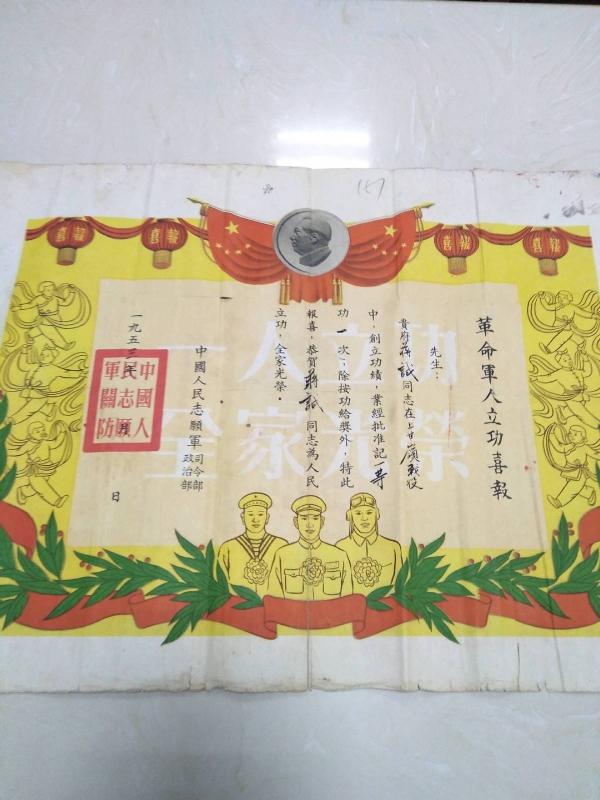 喜報
喜報
喜報
喜報
一人立功
全家光榮
革命軍人立功喜報
先生：
貴府蔣誠同志在上甘嶺戰役
中，創立功績，業經批准記一等
功一次；除按功給獎外，特此
報喜，恭賀蔣誠同志為人民
立功，全家光榮。
中國人民志願軍
司令部
政治部
一九五三年 月 日
中國人
民志願
軍關防